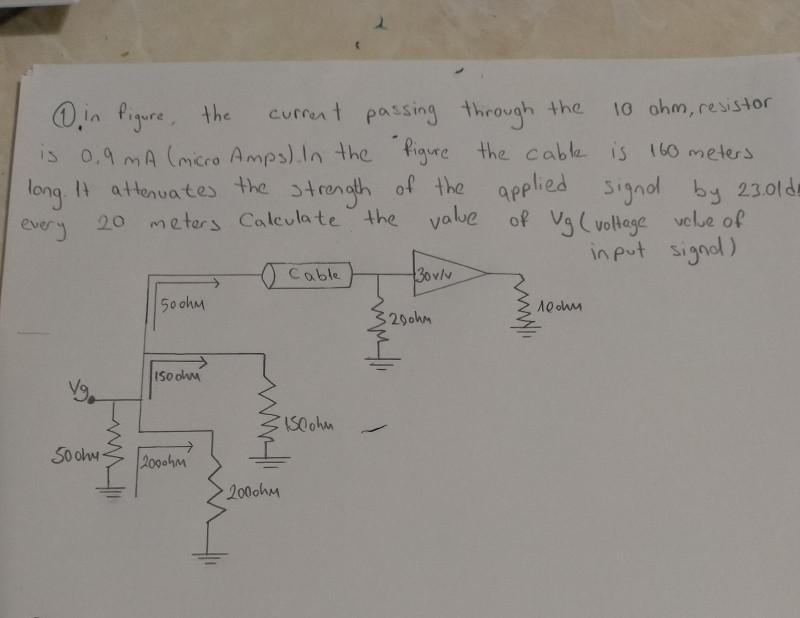 ① in figure, the current passing through the 10 ohm, resistor
is 0,9 mA (micro Amps). In the figure the cable is 160 meters
long. It attenuates the strength of the applied signal by 23.01d
every 20 meters Calculate the value of Vg (voltage value of
input signal)
Cable
30v/v
50ohm
20ohm
10ohm
150ohm
Vg
150ohm
50ohm
200ohm
200ohm